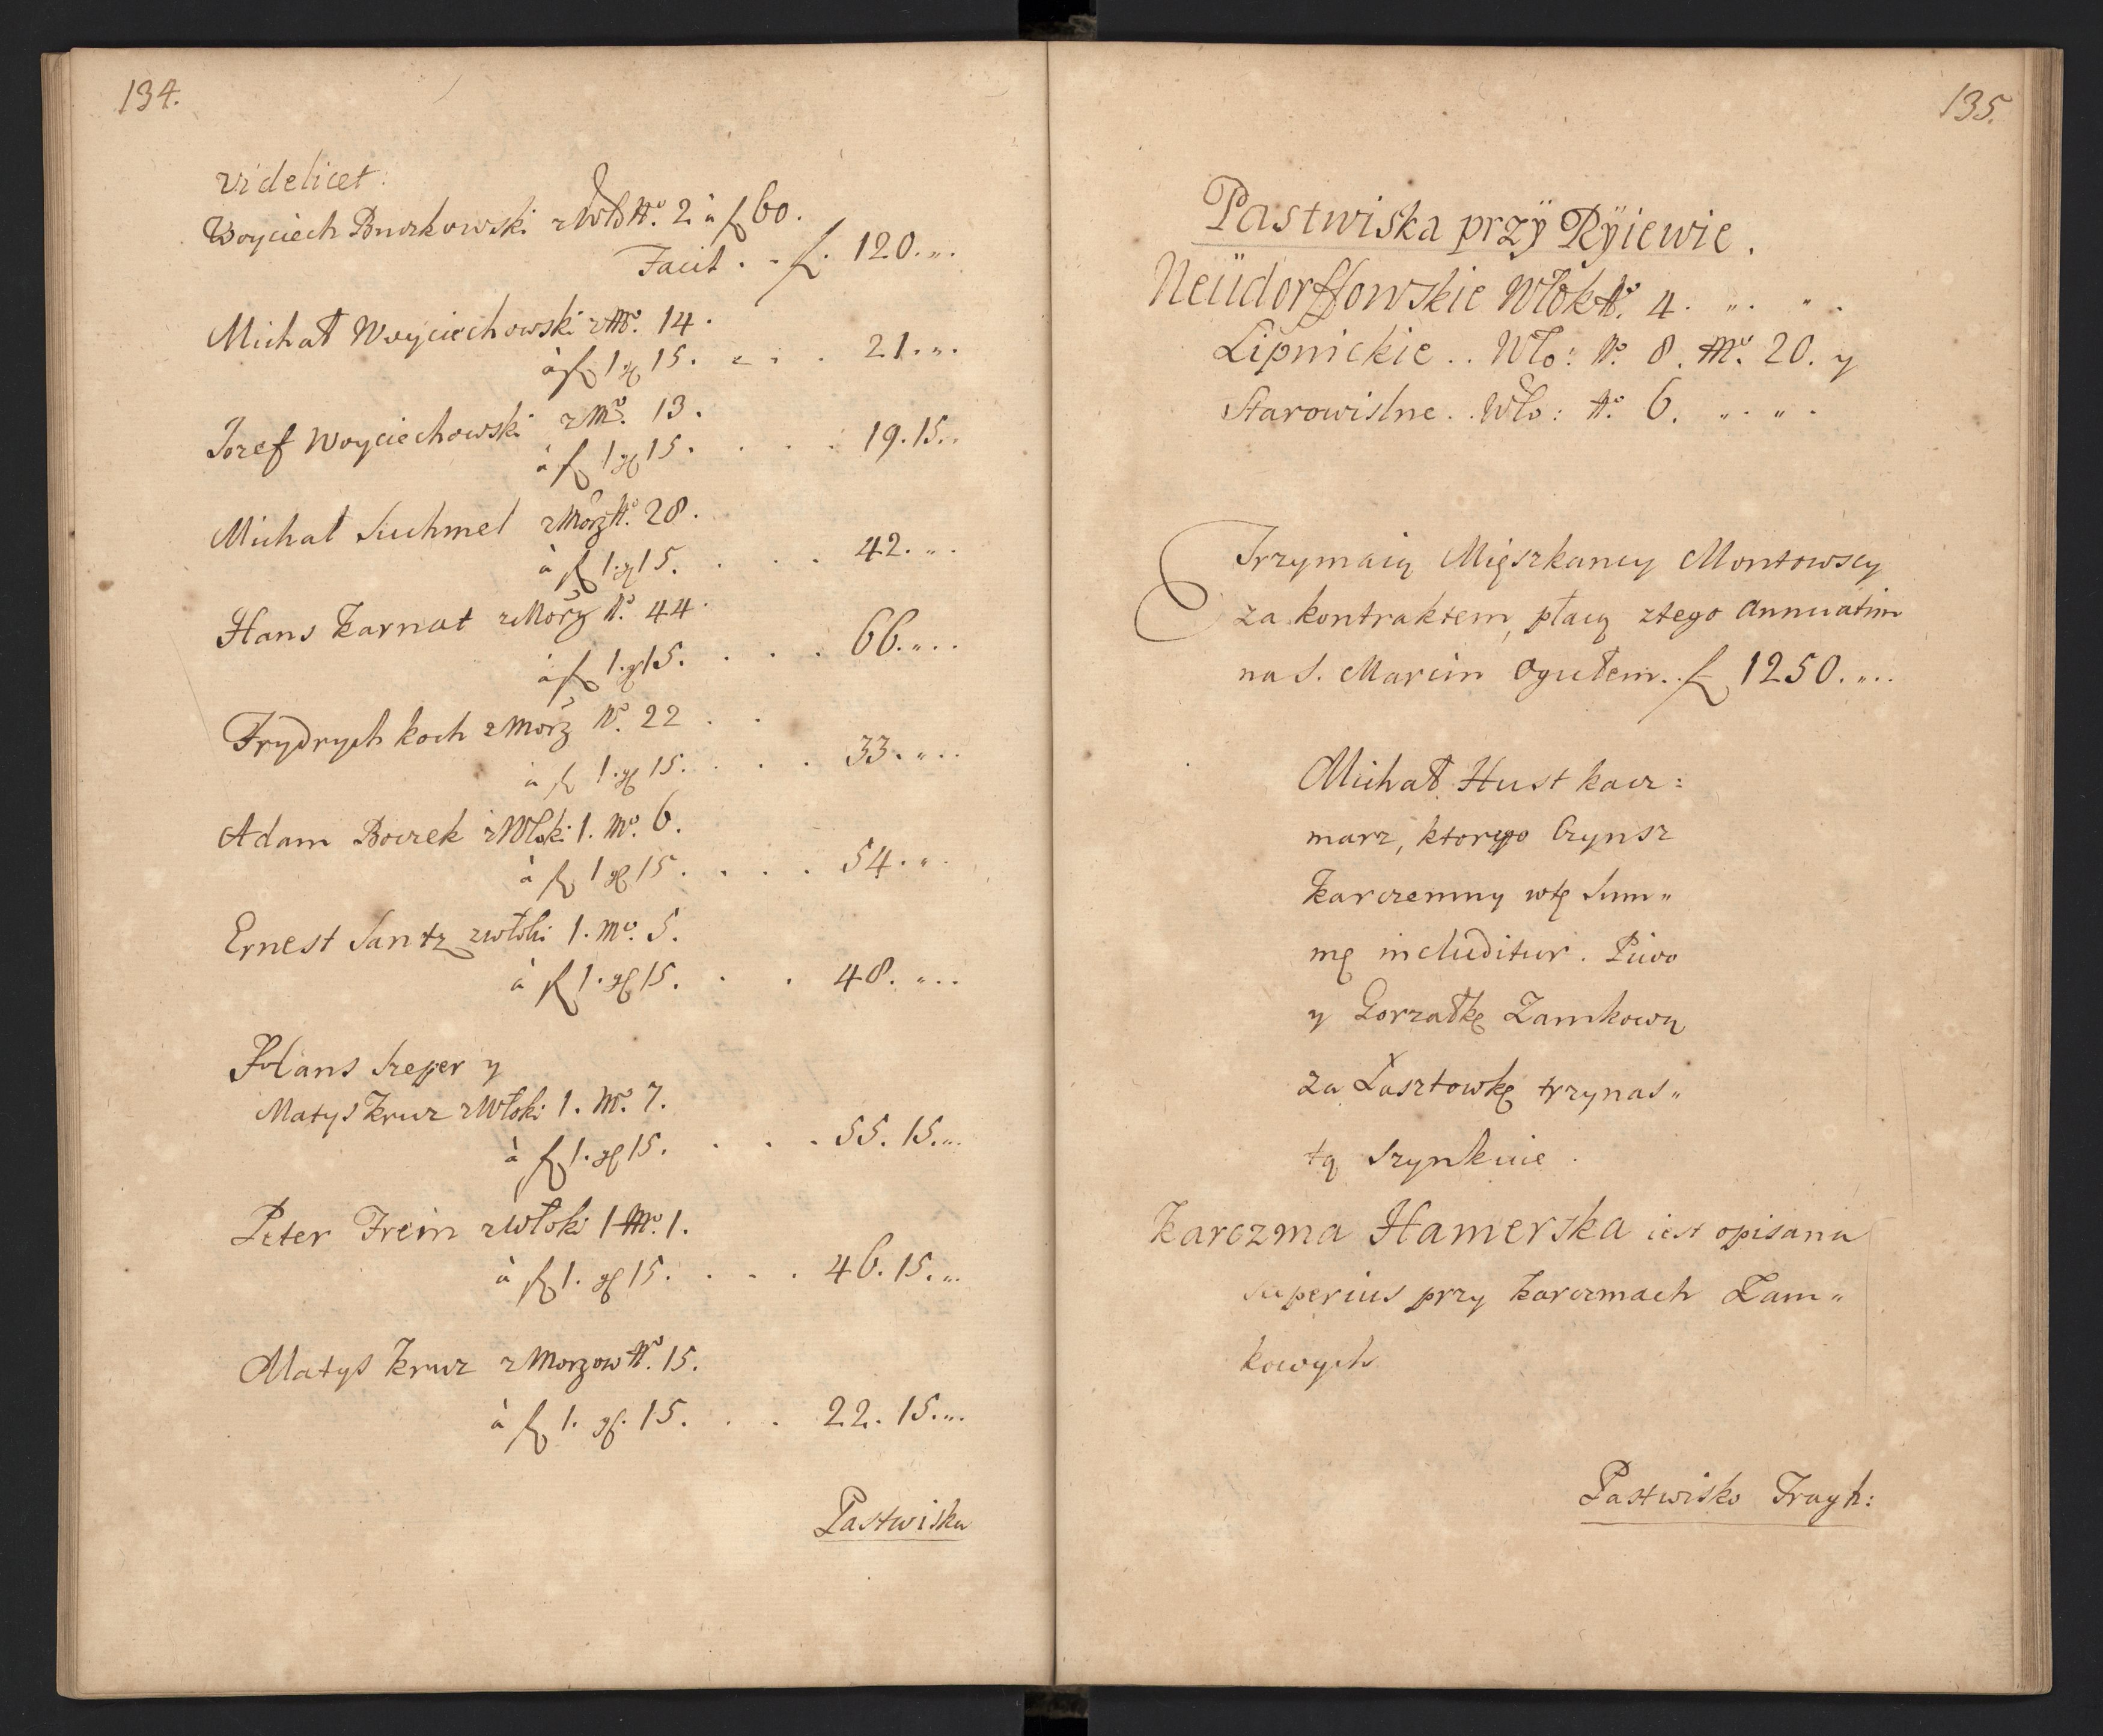 134.
videlicet:
Woyciech Burkowski z Wło N.º 2 à f 60.
Facit . . f. 120.„.
Michał Woyciechowski z M.º 14.
à f 1 gr 15. . . . 21.„.
Jozef Woyciechowski z M.º 13.
à f 1 gr 15. . . . 19.15..
Michał Suchmel z Morz N.º 28.
à f 1. gr 15. . . . 42.„.
Hans Karnat z Morz N.º 44.
à f 1. gr 15. . . . 66.„..
Frydrych Koch z Morz N.º 22 . .
à f 1. gr 15. . . . 33.„..
Adam Borzek z Włoki 1. M.º 6.
à f 1 gr 15. . . . 54.„.
Ernest Santz z włoki 1. M.º 5.
à f 1. gr 15. . . 48.„..
Hans Szeper y
Matys Kruz z Włoki 1. M.º 7.
à f 1. gr 15. . . . 55. 15.„.
Peter Frein z Włoki 1 M.º 1.
à f 1. gr 15. . . . 46. 15.„.
Matys Kruz z Morzow N.º 15.
à f 1. gr. 15. . . 22. 15.„.
Pastwiska
135.
Pastwiska przÿ Rÿiewie.
Neüdorffowskie Włok N.º 4. „. „ .
Lipnickie . . Wło: N.º 8. M.º 20. y
Starowislne. . Wło: N.º 6. „. „ .
Trzymaią Mięszkancy Montowscy
za kontraktem, płacą z tego Annuatim
na S. Marcin ogułem. f 1250.„..
Michał Hust karz:
marz, ktorego Czynsz
Karczemny w tę Sum„
mę includitur. Piwo
y Gorzałkę Zamkową
za Łasztowkę trzynas„
tą Szynkuie.
Karczma Hamerska iest opisana
superius przy Karczmach Zam„
kowych
Pastwisko Trągh: